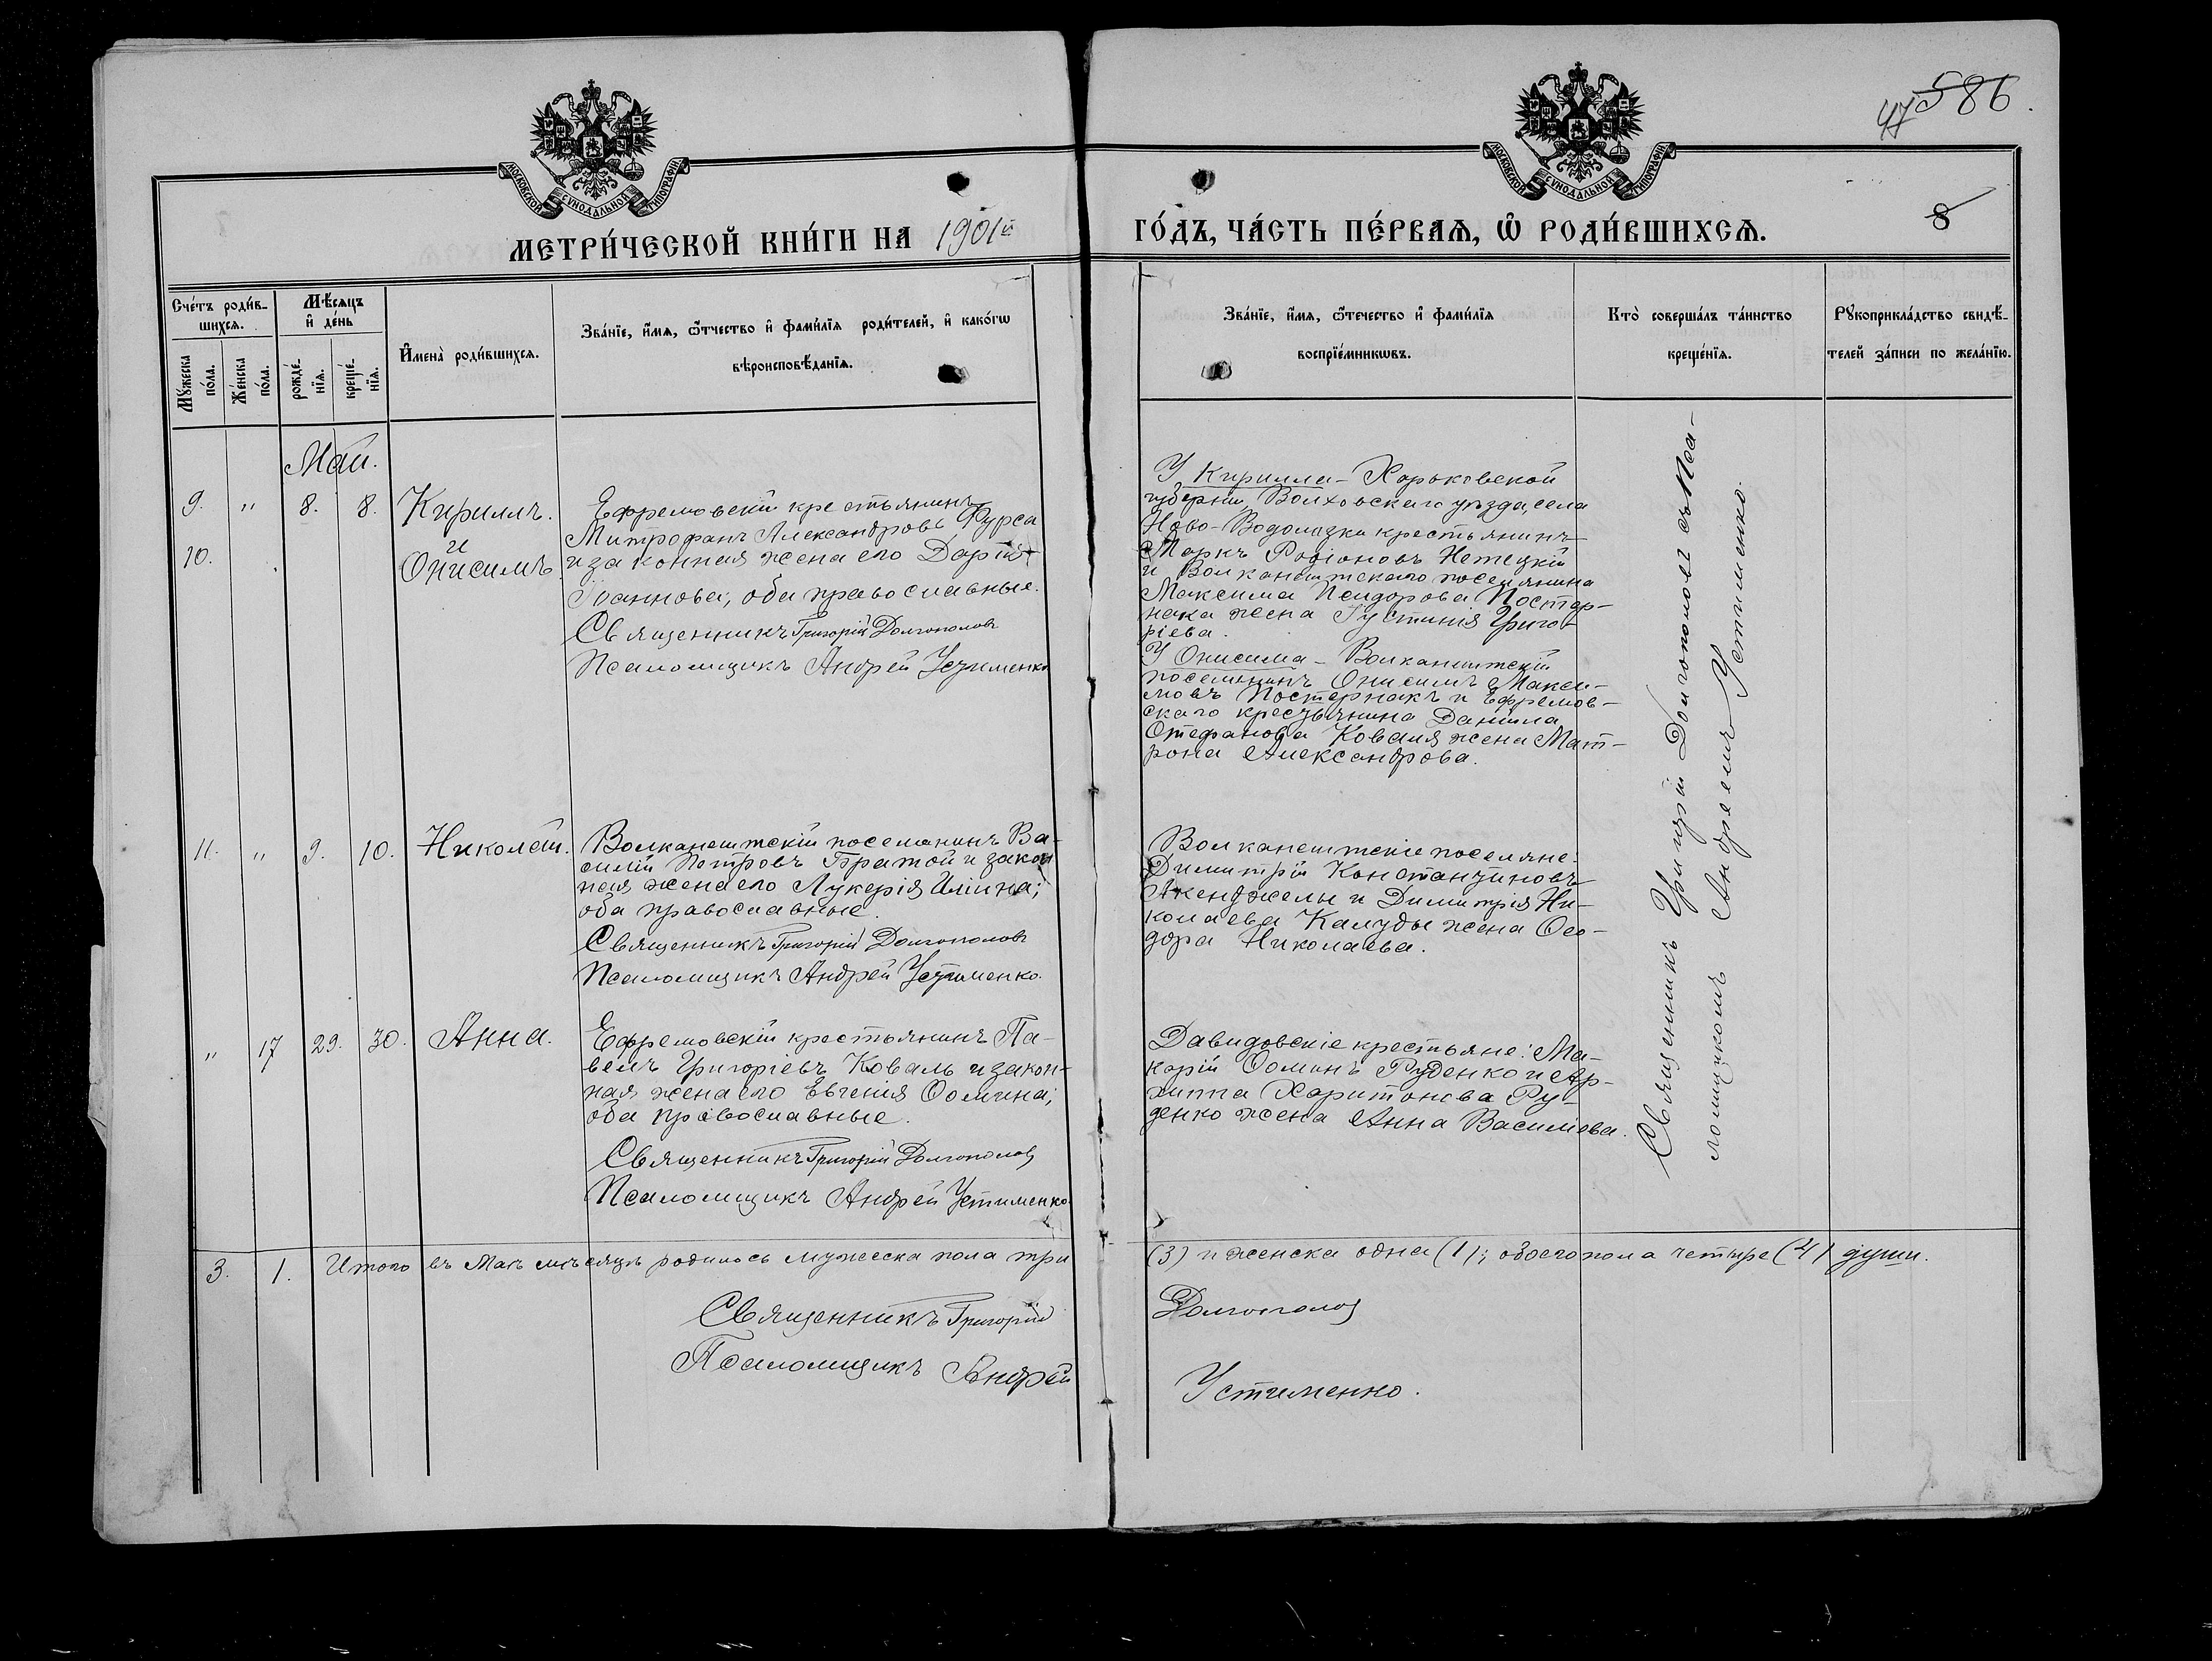 47 586.
МОСКОВСКОЙ СѴНОДАЛЬНОЙ ТИПОГРАФІИ
МОСКОВСКОЙ СѴНОДАЛЬНОЙ ТИПОГРАФІИ
8
МЕТРИ́ЧЕСКОЙ КНИ́ГИ НА 1901й ГО́ДЪ, ЧА́СТЬ ПЕ́РВАѦ, Ѽ РОДИ́ВШИХСѦ.
Сче́тъ роди́в-
шихсѧ.
Мꙋ́жеска по́ла.
Же́нска по́ла.
Мѣ́сѧцъ
и҆ де́нь
рожде́-нїѧ.
креще́-нїѧ.
И҆мена̀ роди́вшихсѧ.
Зва́нїе, и҆́мѧ, ѻ҆́тчество и҆ фами́лїѧ роди́телей, и҆ како́гѡ
вѣроисповѣ́данїѧ.
Зва́нїе, и҆́мѧ, ѻ҆́течество и҆ фами́лїѧ
воспрїе́мникѡвъ.
Кто̀ соверша́лъ та́инство
креще́нїѧ.
Рꙋкоприкла́дство свидѣ́-
телей за́писи по жела́нїю.
Май.
9. " 8. 8. Кириллъ.
и
10. Онисимъ.
Ефремовскій крестьянинъ
Митрофанъ Александровъ Фурса
и законная жена его Дарія
Іоаннова, оба православные.
Священникъ Григорій Долгополовъ
Псаломщикъ Андрей Устименко
У Кирилла - Харьковской
губерніи, Волховскаго уѣзда, села
Ново-Водолазки крестьянинъ
Маркъ Родіоновъ Нетецкій
и Волканештскаго поселянина
Максима Исидорова Постер-
нака жена Іустинія Григо-
ріева.
У Онисима - Волканештскій
поселянинъ Онисимъ Макси-
мовъ Постернакъ и Ефремов-
скаго крестьянина Даніила
Стефанова Коваля жена Мат-
рона Александрова.
11. " 9. 10. Николай.
Волканештскій поселянинъ Ва-
силій Петровъ Братой и закон
ная жена его Лукерія Иліина;
оба православные.
Священникъ Григорій Долгополовъ
Псаломщикъ Андрей Устименко.
Волканештскіе поселяне:
Димитрій Константиновъ
Акенджелы и Димитрія Ни-
колаева Калуды жена Ѳео-
дора Николаева.
" 17 29. 30. Анна.
Ефремовскій крестьянинъ Па-
велъ Григоріевъ Коваль и закон-
ная жена его Евгенія Ѳомина;
оба православные.
Священникъ Григорій Долгополовъ
Псаломщикъ Андрей Устименко
Давидовскіе крестьяне: Ма-
карій Ѳоминъ Руденко и Ар-
хиппа Харитонова Ру-
денко жена Анна Василіева.
Священникъ Григорій Долгополовъ съ Пса-
ломщикомъ Андреемъ Устименко.
3. 1. Итого въ Маѣ мѣсяцѣ родилось мужеска пола три (3) и женска одна (1); обоего пола четыре (4) души.
Священникъ Григорій Долгополовъ
Псаломщикъ Андрей Устименко.